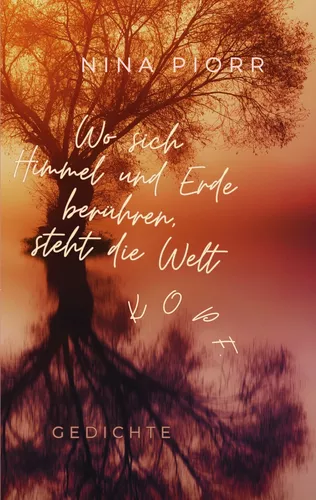 NINA PIORR
Wo sich
Himmel und Erde
berühren,
steht die Welt
KOPF.
GEDICHTE